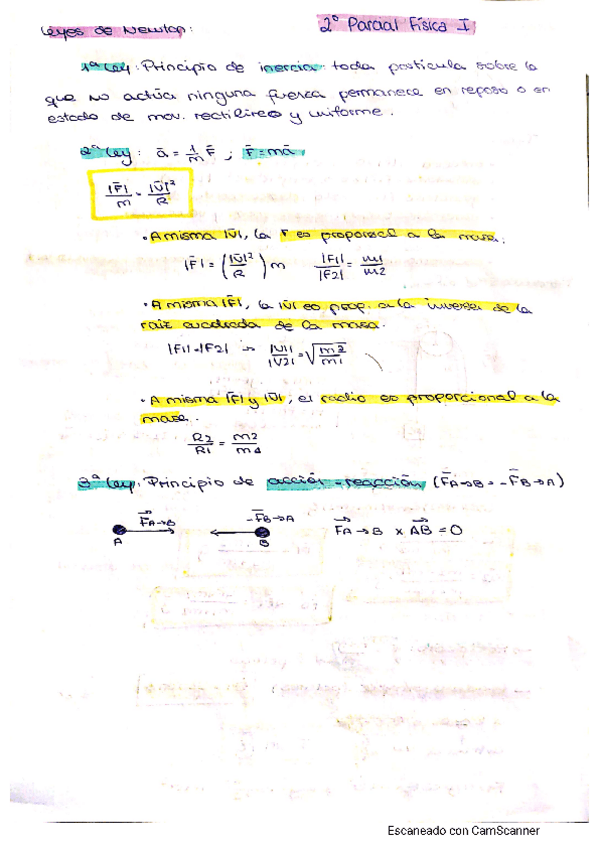 Leyes de Newton: 2º Parcial Física I
1ª Ley: Principio de inercia: toda partícula sobre la
que no actúa ninguna fuerza permanece en reposo o en
estado de mov. rectilíneo y uniforme.
2ª Ley: ā = 1/m F̄ ; F̄ = mā
|F̄|/m = |v̄|²/R
· A misma |v̄|, la F es proporcal a la masa.
|F̄| = (|v̄|²/R) m |F1|/|F2| = m1/m2
· A misma |F̄|, la |v̄| es prop. a la inversa de la
raíz cuadrada de la masa.
|F1| = |F2| → |v1|/|v2| = √(m2/m1)
· A misma |F̄| y |v̄|, el radio es proporcional a la
masa.
R2/R1 = m2/m1
3ª Ley: Principio de acción-reacción (F̄A→B = -F̄B→A)
F⃗A→B -F̄B→A F⃗A→B x A⃗B = 0
A B
Escaneado con CamScanner